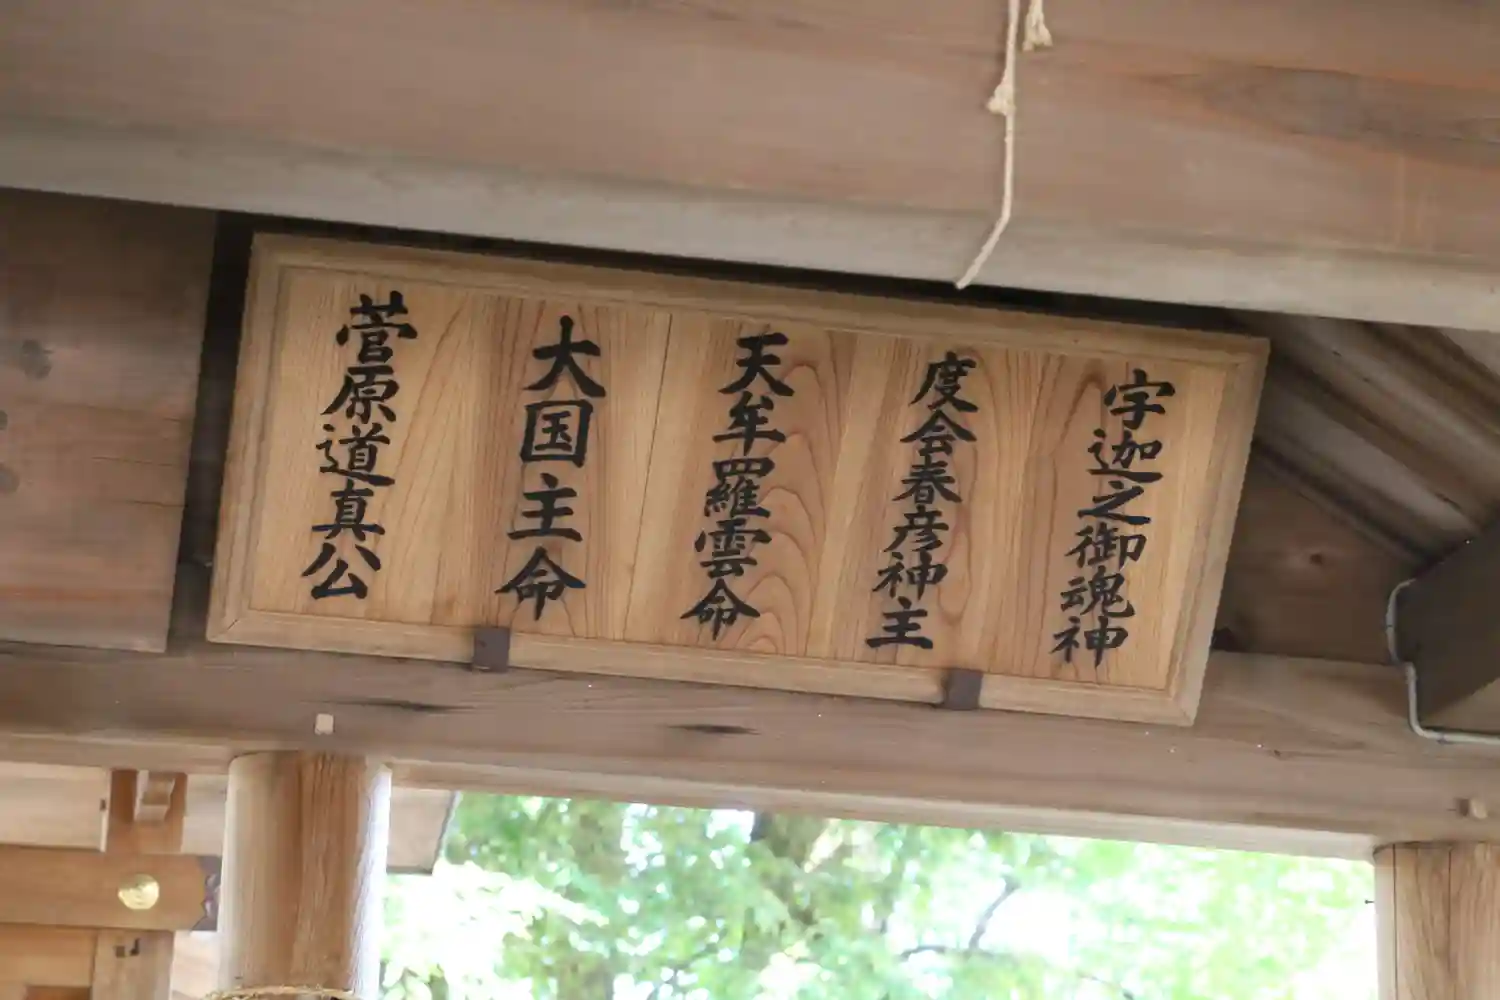 宇迦之御魂神
度会春彦神主
天牟羅雲命
大国主命
菅原道真公